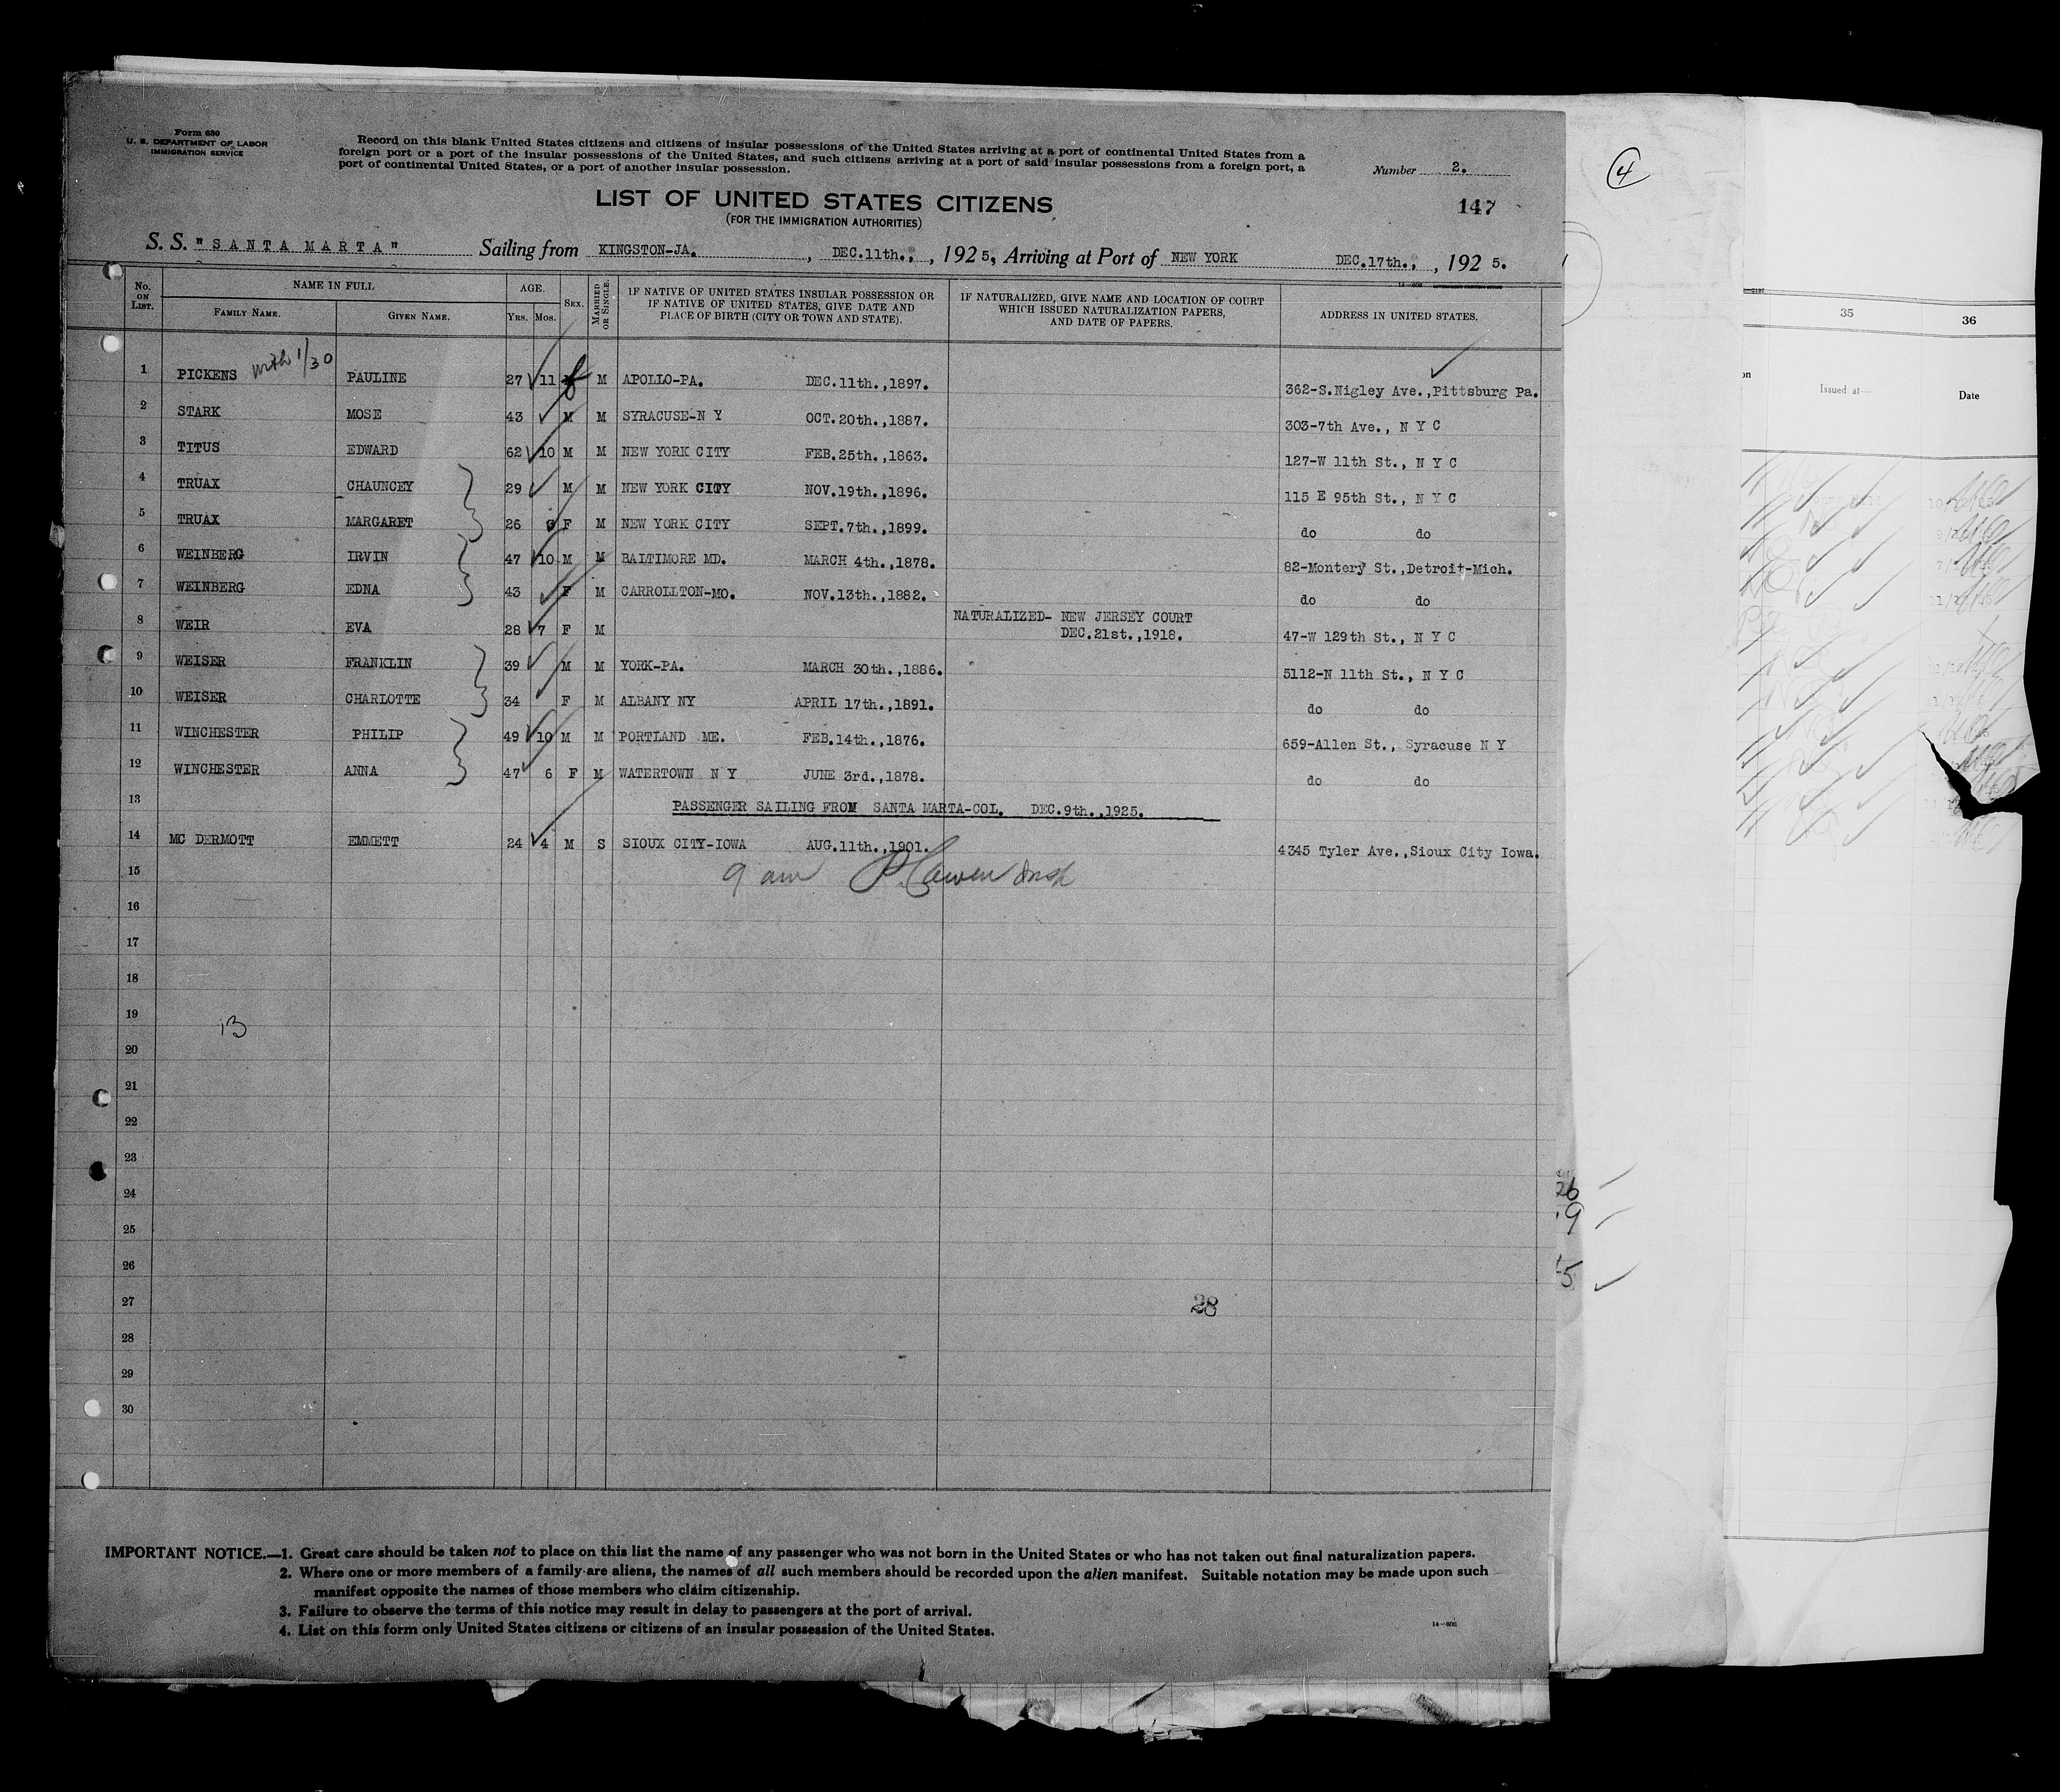 Form 630
U. S. DEPARTMENT OF LABOR
IMMIGRATION SERVICE
Record on this blank United States citizens and citizens of insular possessions of the United States arriving at a port of continental United States from a
foreign port or a port of the insular possessions of the United States, and such citizens arriving at a port of said insular possessions from a foreign port, a
port of continental United States, or a port of another insular possession.
Number 2.
LIST OF UNITED STATES CITIZENS
(FOR THE IMMIGRATION AUTHORITIES)
147
S. S. "SANTA MARTA" Sailing from KINGSTON-JA., DEC.11th., , 1925, Arriving at Port of NEW YORK DEC.17th., , 1925.
No. ON LIST. NAME IN FULL AGE. SEX. MARRIED OR SINGLE. IF NATIVE OF UNITED STATES INSULAR POSSESSION OR IF NATIVE OF UNITED STATES, GIVE DATE AND PLACE OF BIRTH (CITY OR TOWN AND STATE). IF NATURALIZED, GIVE NAME AND LOCATION OF COURT WHICH ISSUED NATURALIZATION PAPERS, AND DATE OF PAPERS. ADDRESS IN UNITED STATES.
FAMILY NAME. GIVEN NAME. YRS. MOS.
1 PICKENS with 1/30 PAULINE 27 11 f M APOLLO-PA. DEC.11th.,1897. 362-S.Nigley Ave.,Pittsburg Pa.
2 STARK MOSE 43 M M SYRACUSE-N Y OCT.20th.,1887. 303-7th Ave., N Y C
3 TITUS EDWARD 62 10 M M NEW YORK CITY FEB.25th.,1863. 127-W 11th St., N Y C
4 TRUAX CHAUNCEY 29 M M NEW YORK CITY NOV.19th.,1896. 115 E 95th St., N Y C
5 TRUAX MARGARET 26 F M NEW YORK CITY SEPT.7th.,1899. do do
6 WEINBERG IRVIN 47 10 M M BALTIMORE MD. MARCH 4th.,1878. 82-Montery St.,Detroit-Mich.
7 WEINBERG EDNA 43 F M CARROLLTON-MO. NOV.13th.,1882. do do
8 WEIR EVA 28 7 F M NATURALIZED- NEW JERSEY COURT DEC.21st.,1918. 47-W 129th St., N Y C
9 WEISER FRANKLIN 39 M M YORK-PA. MARCH 30th.,1886. 5112-N 11th St., N Y C
10 WEISER CHARLOTTE 34 F M ALBANY NY APRIL 17th.,1891. do do
11 WINCHESTER PHILIP 49 10 M M PORTLAND ME. FEB.14th.,1876. 659-Allen St., Syracuse N Y
12 WINCHESTER ANNA 47 6 F M WATERTOWN N Y JUNE 3rd.,1878. do do
13 PASSENGER SAILING FROM SANTA MARTA-COL. DEC.9th.,1925.
14 MC DERMOTT EMMETT 24 4 M S SIOUX CITY-IOWA AUG.11th.,1901. 4345 Tyler Ave.,Sioux City Iowa.
15 9 am P. Cowen Insp
16
17
18
19
13
20
21
22
23
24
25
26
27
28
28
29
30
IMPORTANT NOTICE.—1. Great care should be taken not to place on this list the name of any passenger who was not born in the United States or who has not taken out final naturalization papers.
2. Where one or more members of a family are aliens, the names of all such members should be recorded upon the alien manifest. Suitable notation may be made upon such
manifest opposite the names of those members who claim citizenship.
3. Failure to observe the terms of this notice may result in delay to passengers at the port of arrival.
4. List on this form only United States citizens or citizens of an insular possession of the United States.
14—606
4
26
9
5
35 36
Issued at— Date